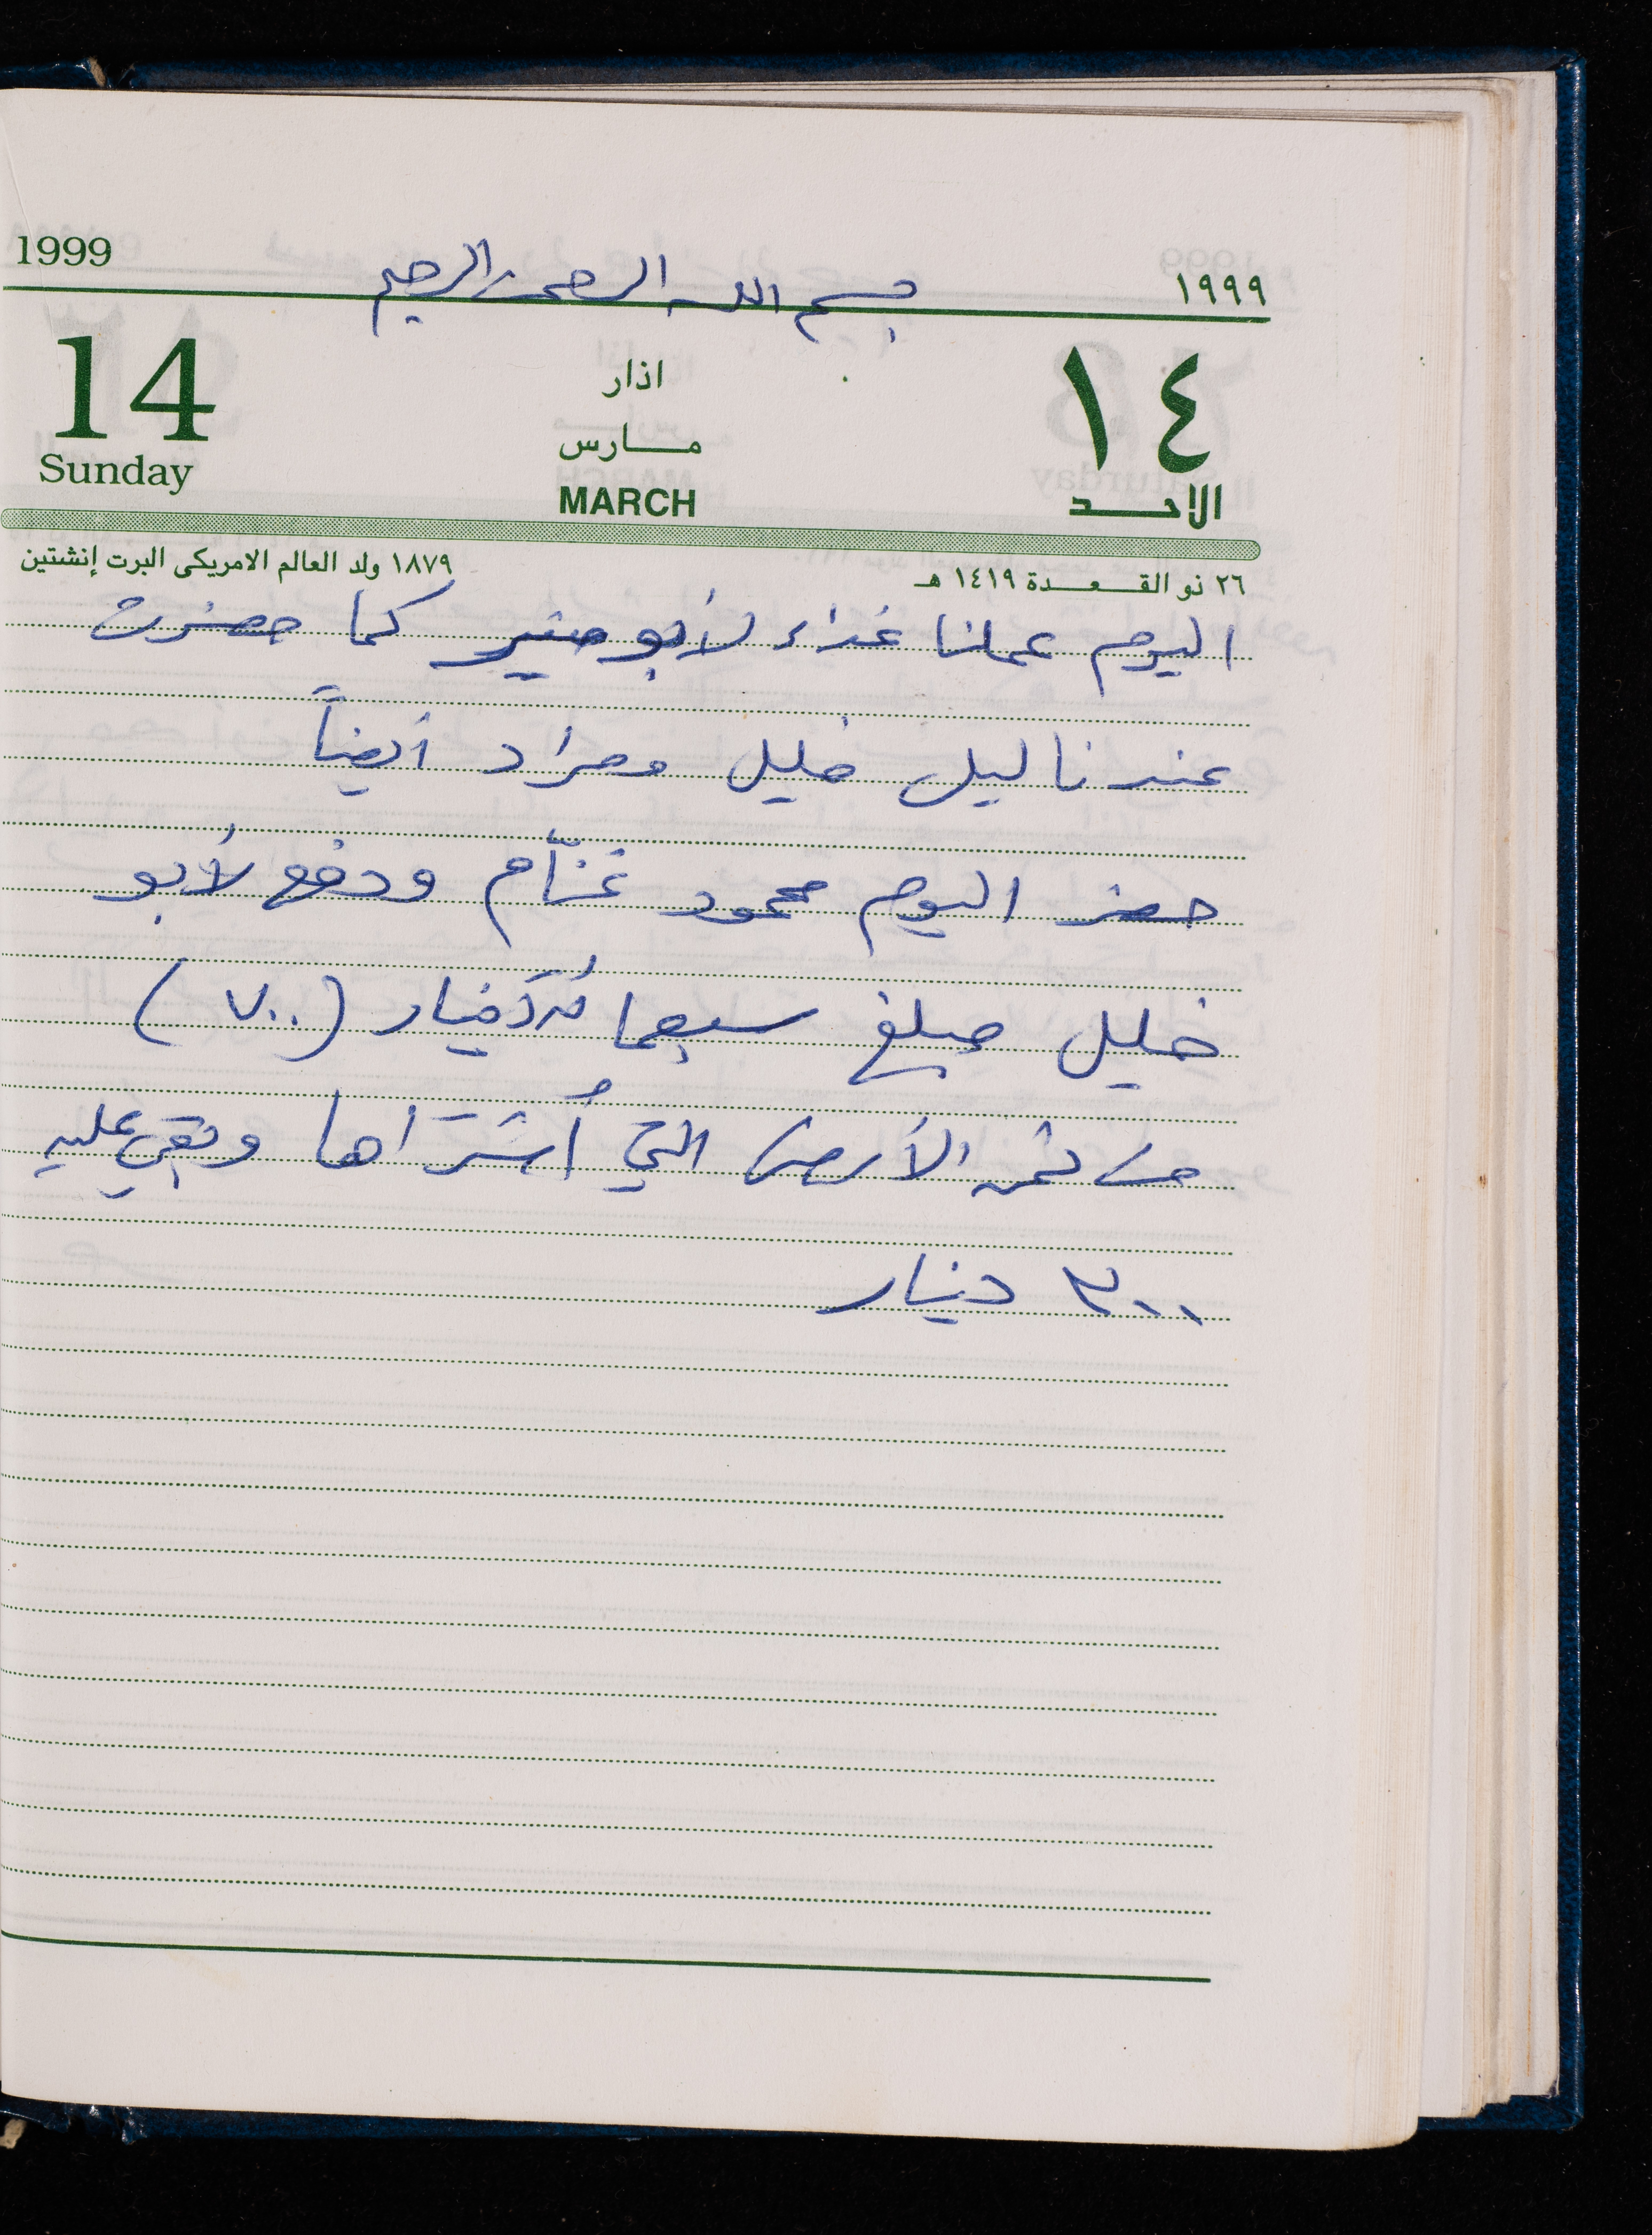 1999
بسم الله الرحمن الرحيم
١٩٩٩
14
اذار
١٤
Sunday
مــارس
MARCH
الاحــد
٢٦ ذو القـعـدة ١٤١٩ هـ
١٨٧٩ ولد العالم الامريكى البرت إنشتين
اليوم عملنا غذاء لأبو منير كما حضرت
عندنا ليل خليل ومراد أيضاً
حضر اليوم محمود غنّام ودفع لأبو
خليل مبلغ سبعمائة دينار (٧٠٠)
من ثمن الأرض التي أشتراها وبقي عليه
٣٠٠ دينار